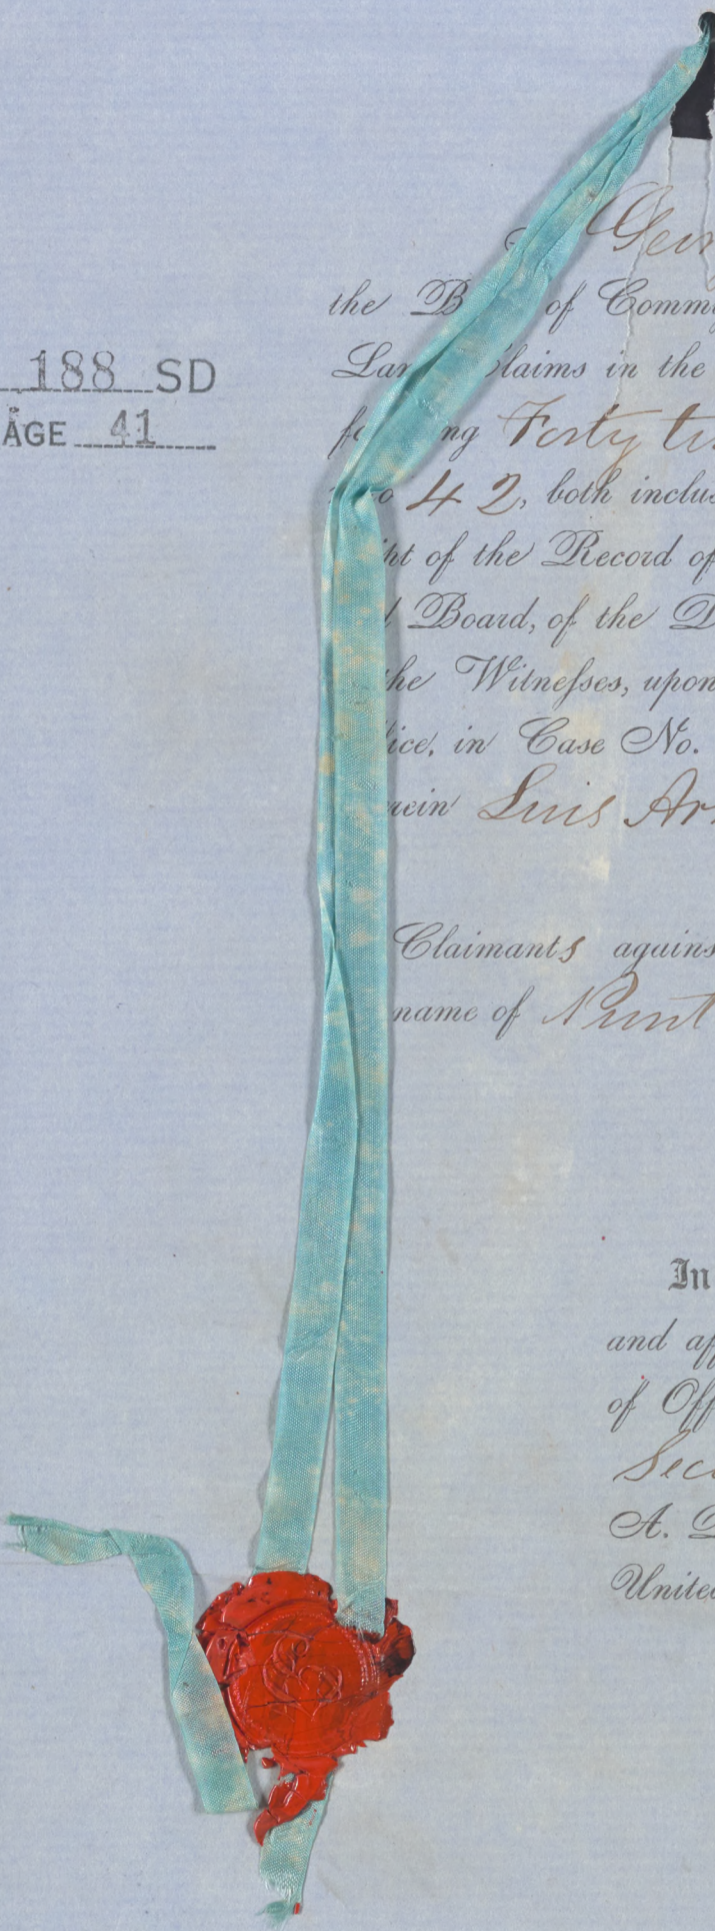 188 SD
AGE 41
Geor
the B of Commi
Lan laims in the
fo ng Forty tw
to 42, both inclus
ipt of the Record of
d Board, of the D
the Witnesses, upon
fice, in Case No.
rein Luis Ar
Claimants agains
name of Punt
In
and af
of Off
Sec
A. D
United